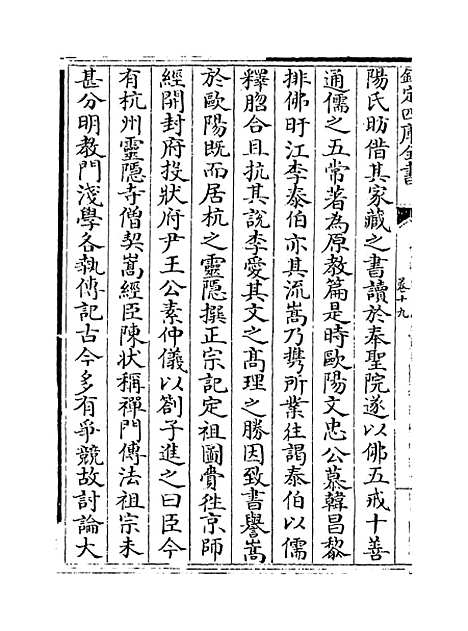 欽定四庫全書
卷十九
陽氏昉借其家藏之書讀於奉聖院遂以佛五戒十善
通儒之五常著為原教篇是時歐陽文忠公慕韓昌黎
排佛盱江李泰伯亦其流嵩乃㩗所業往謁泰伯以儒
釋脗合且抗其說李愛其文之髙理之勝因致書譽嵩
於歐陽既而居杭之靈隱撰正宗記定祖圖賫徃京師
經開封府投狀府尹王公素仲儀以劄子進之曰臣今
有杭州靈隱寺僧契嵩經臣陳狀稱禪門傳法祖宗未
甚分明教門淺學各執傳記古今多有爭競故討論大